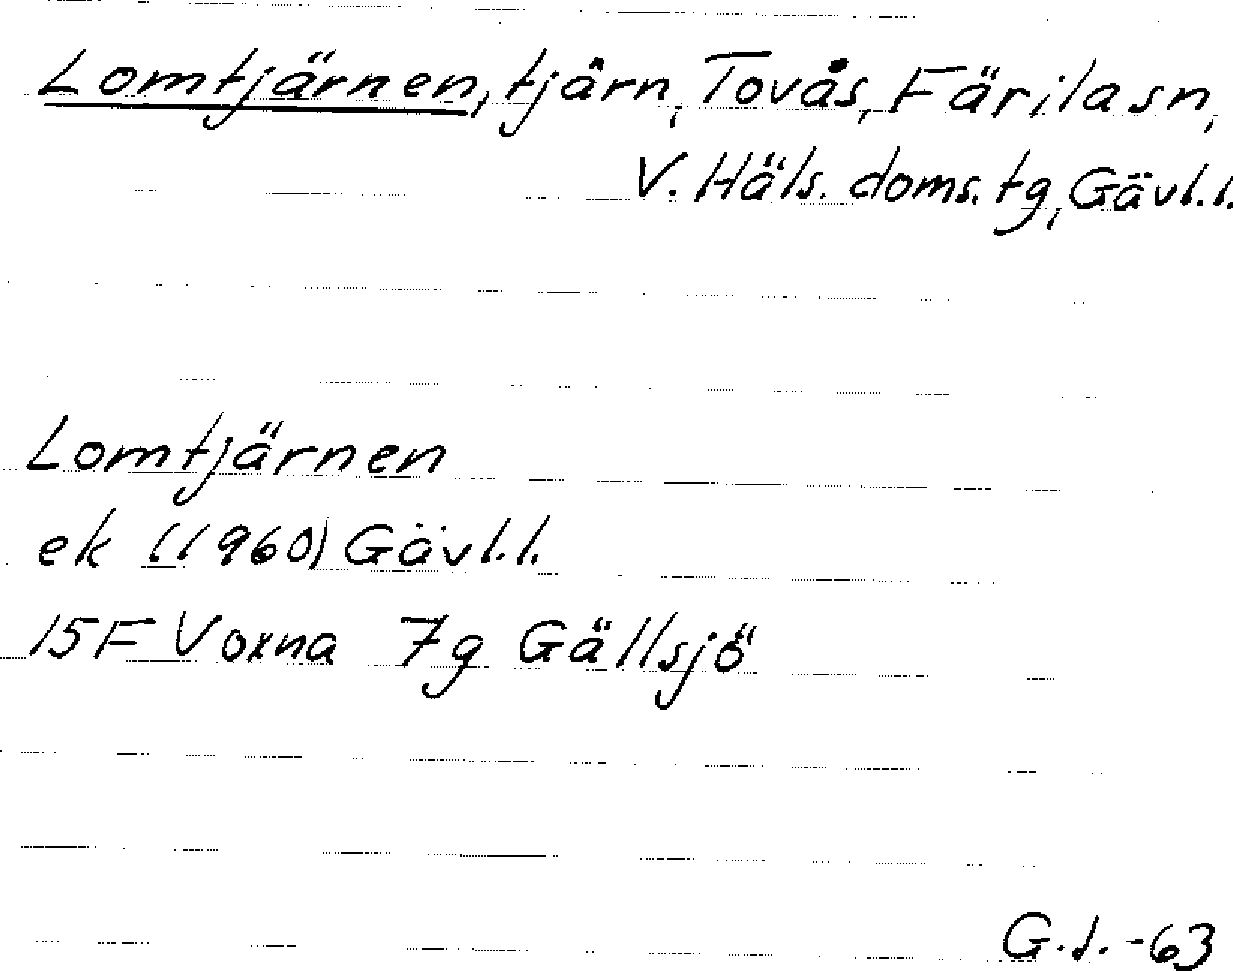 Lomtjärnen, tjärn, Tovås, Färila sn,
V. Häls. doms. tg, Gävl. l.
Lomtjärnen
ek (1960) Gävl. l.
15F Voxna 7g Gällsjö
G. J. -63